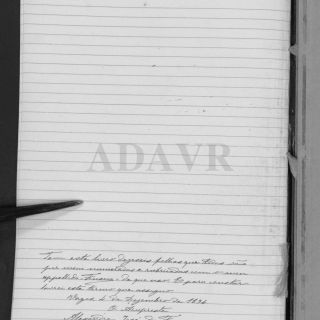 ADAVR
Tem este livro dezeseis folhas que todas vão
por mim numeradas e rubricadas com o meu
appellido de que uso. E para constar
lavrei este termo que assigno.
Vagos 4 de Dezembro de 18
O
Alexandre José da